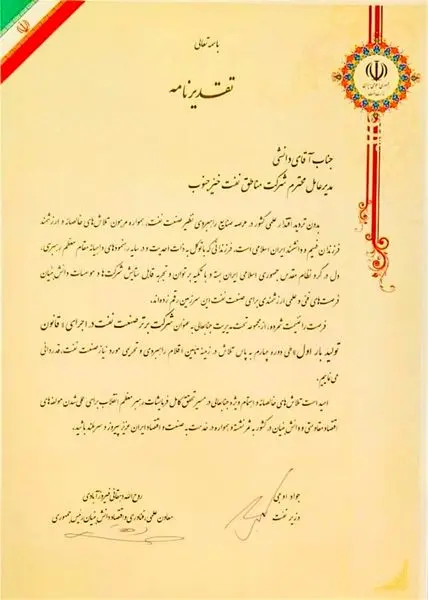 باسمه تعالی
تقدیرنامه
جناب آقای دانشی
مدیرعامل محترم شرکت مناطق نفت خیز جنوب
بدون تردید اقتدار علمی کشور در عرصه صنایع راهبردی نظیر صنعت نفت، همواره مرهون تلاش‌های خالصانه و ارزشمند
فرزندان فهیم و دانشمند ایران اسلامی است، فرزندانی که با توکل به ذات احدیت و در سایه رهنمودهای داهیانه مقام معظم رهبری،
دل در گرو نظام مقدس جمهوری اسلامی ایران بسته و با تکیه بر توان و تجربه قابل ستایش شرکت‌ها و موسسات دانش بنیان
فرصت‌های فنی و علمی ارزشمندی برای صنعت نفت این سرزمین رقم زده‌اند.
فرصت را غنیمت شمرده و از مجموعه تحت مدیریت جنابعالی به عنوان شرکت برتر صنعت نفت در اجرای «قانون
تولید بار اول» طی دوره چهارم به پاس تلاش در زمینه تامین اقلام راهبردی و تحریمی مورد نیاز صنعت نفت، قدردانی
می‌نماییم.
امید است تلاش‌های خالصانه و اهتمام ویژه جنابعالی در مسیر تحقق کامل فرمایشات رهبر معظم انقلاب برای عملی شدن مولفه‌های
اقتصاد مقاومتی و دانش بنیان در کشور به ثمر نشسته و همواره در خدمت به صنعت و اقتصاد ایران عزیز پیروز و سربلند باشید.
جواد اوجی
وزیر نفت
روح الله دهقانی فیروزآبادی
معاون علمی، فناوری و اقتصاد دانش بنیان رئیس جمهوری